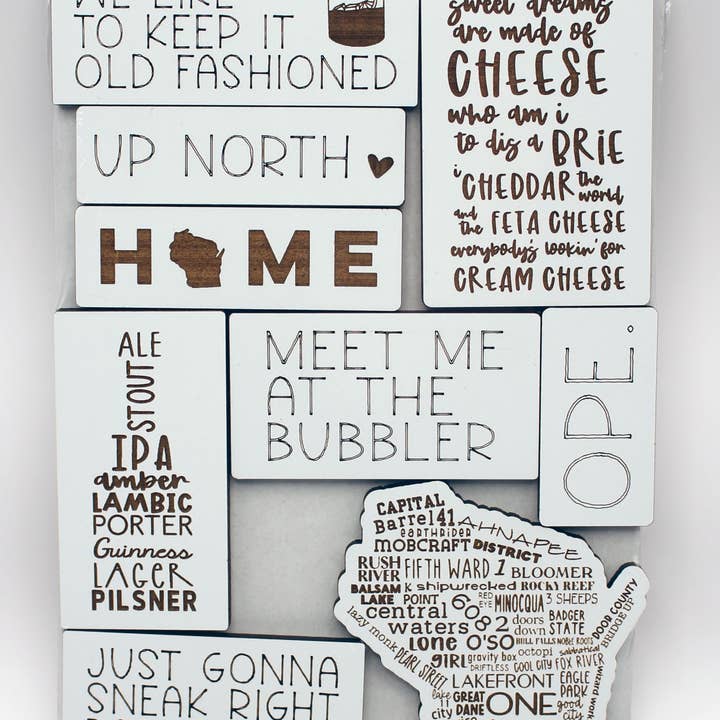 WE LIKE
TO KEEP IT
OLD FASHIONED
sweet dreams
are made of
CHEESE
who am i
to dis a BRIE
i CHEDDAR the world
and the FETA CHEESE
everybody's lookin' for
CREAM CHEESE
UP NORTH
HOME
ALE
STOUT
IPA
amber
LAMBIC
PORTER
Guinness
LAGER
PILSNER
MEET ME
AT THE
BUBBLER
OPE.
CAPITAL
Barrel 41 AHNAPEE
earthrider
MOBCRAFT DISTRICT
RUSH RIVER FIFTH WARD 1 BLOOMER
BALSAM LAKE K shipwrecked ROCKY REEF
POINT 6082 RED EYE MINOCQUA 3 SHEEPS
central waters doors down BADGER STATE DOOR COUNTY
BRIDGE UP
lazy monk LONE GIRL O'SO HILL FALLS NOBLE ROOTS
octopi sabbatical
PEARL STREET gravity box
DRIFTLESS COOL CITY FOX RIVER
LAKEFRONT EAGLE PARK wizard works
lake city GREAT DANE ONE good city
JUST GONNA
SNEAK RIGHT